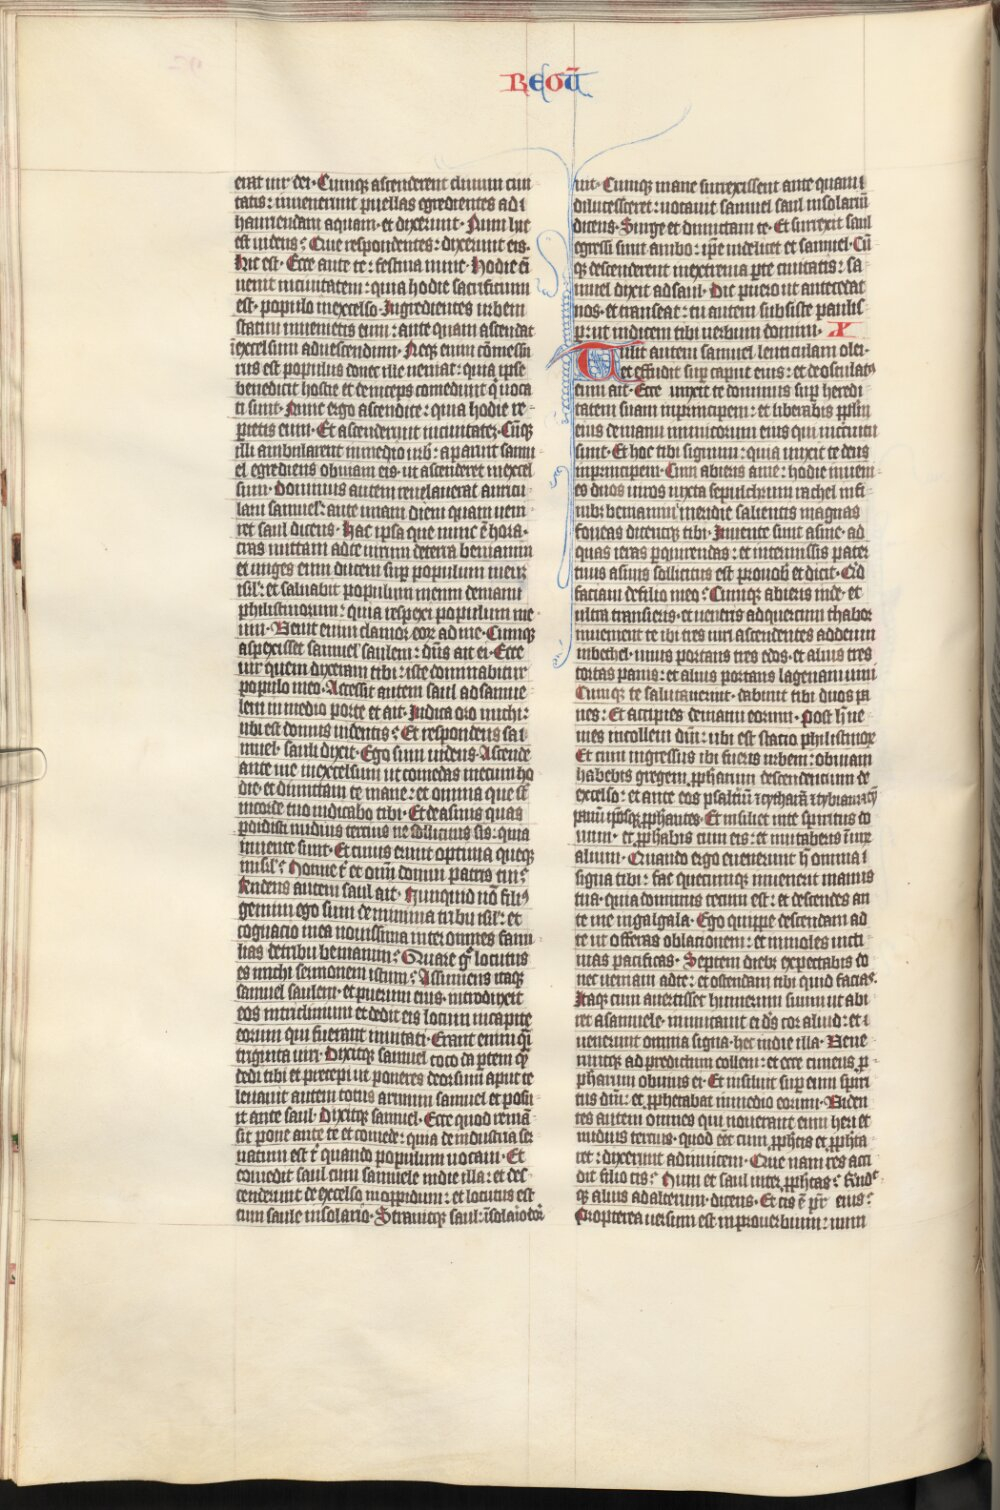 REGŪ
erat uir dei. Cumq; ascenderent cliuum ciui
tatis: inuenerunt puellas egredientes ad
hauriendam aquam. et dixerunt. Num hic
est uidens? Que respondentes: dixerunt eis.
Hic est. Ecce ante te: festina nunc. Hodie eī
uenit inciuitatem: quia hodie sacrificium
est. populo inexcelso. Ingredientes urbem
statim inuenietis eum: ante quam ascendat
īexcelsum aduescendum. Neq; enim cōmessu
rus est populus donec ille ueniat: quia ipse
benedicit hostie et deinceps comedunt q̇ uoca
ti sunt. Nunc ergo ascendite: quia hodie re
ꝑietis eum. Et ascenderunt inciuitatez. Cūq;
illi ambularent inmedio urb̛: aparuit samu
el egrediens obuiam eis. ut ascenderet inexcel
sum. Dominus autem reuelauerat auricu
lam samuel̛: ante unam diem quam ueni
ret saul dicens. Hac ipsa que nunc ē hora.
cras mittam adte uirum deterra beniamin
et unges eum ducem suꝑ populum meuz
isrl̛: et saluabit populum meum demanu
philistinorum: quia respexi populum me
um. Uenit enim clamor eoꝝ ad me. Cumq;
aspexisset samuel saulem: dn̄s ait ei. Ecce
uir quem dixeram tibi: iste dominabitur
populo meo. Accessit autem saul ad samue
lem in medio porte et ait. Indica oro michi:
ubi est domus uidentis? Et respondens sa
muel. sauli dixit. Ego sum uidens. Ascende
ante me inexcelsum ut comedas mecum ho
die. et dimittam te mane: et omnia que sūt
incorde tuo indicabo tibi. Et deasinis quas
ꝑdidisti nudius tercius ne sollicitus sis: quia
inuente sunt. Et cuius erunt optima queq;
inisrl̛? Nonne t̄ et om̄i domui patris tui?
Rn̄dens autem saul ait. Nunquid nō fili9
gemini ego sum de minima tribu isrl̛: et
cognacio mea nouissima inter omnes fami
lias detribu beniamin? Quare g̊ locutus
es michi sermonem istum? Assumens itaq;
samuel saulem. et puerum eius. introduxit
eos intriclinium et dedit eis locum incapite
eorum qui fuerant inuitati. Erant enim q̄si
triginta uiri. Dixitq; samuel coco da ꝑtem q̄
dedi tibi et precepi ut poneres deorsum aput te
leuauit autem cocus armum samuel et posu
it ante saul. Dixitq; samuel. Ecce quod remā
sit pone ante te et comede: quia deindustria ser
uatum est t̄ quando populum uocaui. Et
comedit saul cum samuele indie illa: et des
cenderunt de excelso inoppidum: et locutus est
cum saule insolario. Strauitq; saul: īsolaio et dor
iuit. Cumq; mane surrexissent ante quam
dilucesceret: uocauit samuel saul insolariū
dicens. Surge et dimittam te. Et surrexit saul
egressi sunt ambo: ip̄e uidelicet et samuel. Cū
q; descenderent inextrema ꝑte ciuitatis: sa
muel dixit ad saul. Dic puero ut antecedat
nos. et transeat: tu autem subsiste paulis
ꝑ: ut indicem tibi uerbum domini. X
Tulit autem samuel lenticulam olei.
et effudit suꝑ caput eius: et deosculat9
eum ait. Ecce unxit te dominus suꝑ heredi
tatem suam inprincipem: et liberabis pp̄lm
eius demanu inimicorum eius qui incircuitu
sunt. Et hoc tibi signum: quia unxit te deus
inprincipem. Cum abieris ame: hodie inueni
es duos uiros iuxta sepulchrum rachel infi
nib; beniamin meridie salientis magnas
foueas dicentq; tibi. Inuente sunt asine. ad
quas ieras ꝑquirendas: et intermissis pater
tuus asinis sollicitus est pro uob̛ et dicit. Qid
faciam defilio meo? Cumq; abieris inde. et
ultra transieris. et ueneris adquercum thabor
inuenient te ibi tres uiri ascendentes addeum
inbethel. unus portans tres edos. et alius tres
tortas panis: et alius portans lagenam uini
Cumq; te salutauerint. dabunt tibi duos pa
nes: Et accipies demanu eorum. Post h̄ ue
nies incollem dn̄i: ubi est statio philistinoꝝ
Et cum ingressus ibi fueris urbem: obuiam
habebis gregem ꝓphetarum descendencium de
excelso: et ante eos psalteriū
Et insiliet inte spiritus do
mini. et ꝓphabis cum eis: et mutaberis ī uirū
alium. Quando ergo euenerunt h̄ omnia
signa tibi: fac quecumq; inuenerit manus
tua. quia dominus tecum est: et descendes an
te me ingalgala. Ego quippe descendam ad
te ut offeras oblacionem: et immoles uicti
mas pacificas. Septem dieb; expectabis do
nec ueniam adte: et ostendam tibi quid facias.
Itaq; cum auertisset humerum suum ut abi
ret asamuele. inmutauit ei ds̄ cor aliud: et
uenerunt omnia signa. hec indie illa. Uene
runtq; ad predictum collem: et ecce cuneus ꝓ
phetarum obuius ei. Et insiluit suꝑ eum spiri
tus dn̄i: et ꝓphetabat inmedio eorum. Uiden
tes autem omnes qui nouerant eum heri et
nudius tercius. quod eēt cum ꝓphetis et ꝓpheta
ret: dixerunt adinuicem. Que nam res acci
dit filio cis? Num et saul inter ꝓphetas? Rn̄dit
q; alius adalterum. dicens. Et cis ē pr̄ eius?
Propterea uersum est inprouerbium: num